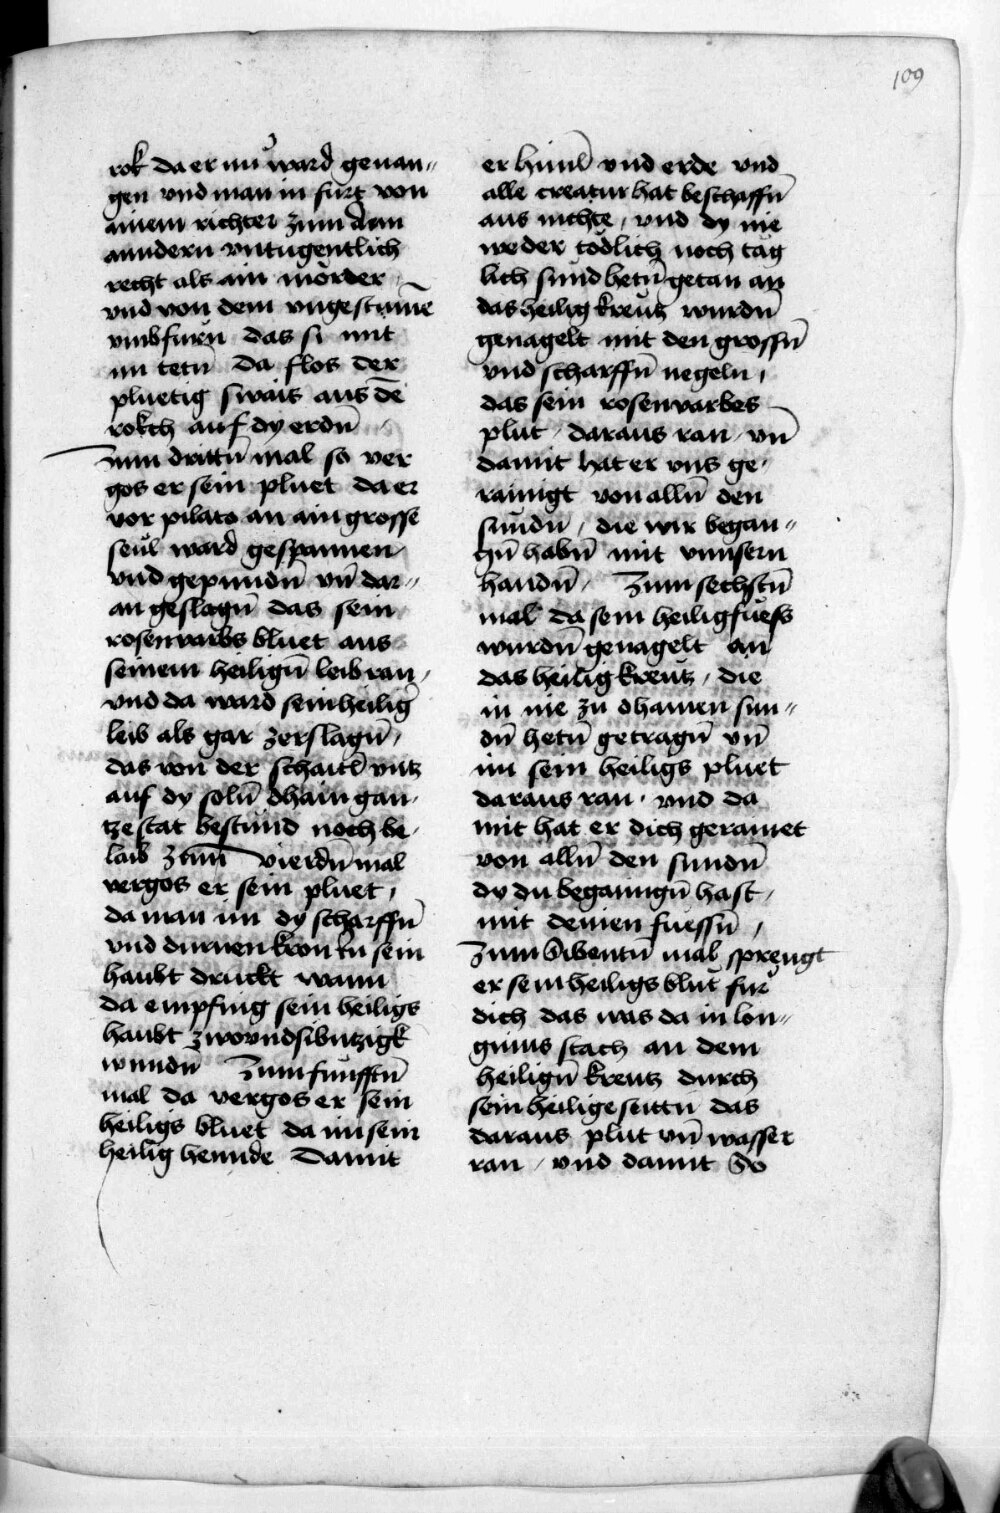 109
rok da er nu ward geuan-
gen vnd man in furt von
ainem richter zum dem
anndern vntugentlich
recht als ain morder
vnd von dem vngestum̄e
vmbfurn das si mit
im tetn̄ da flos der
pluetig swais aus dē
rokch auf dy erdn̄
Zum drittn̄ mal so ver
gos er sein pluet da er
vor pilato an ain grosse
seul ward gespannen
vnd gepundn̄ vn̄ dar-
an geslagn̄ das sein
rosenuarbs bluet aus
seinem heilign̄ leib ran
vnd da ward sein heilig
leib als gar zerslagn̄
das von der schaitl vntz
auf dy soln̄ dhain gan-
tze stat bestund noch be-
laib Zum vierdn̄ mal
vergos er sein pluet
da man im dy scharffn̄
vnd durnen kron in sein
haubt druckt wann
da empfing sein heiligs
haubt zwovndsibntzigk
wundn̄ Zum funfftn̄
mal da vergos er sein
heiligs bluet da im sein
heilig hennde Damit
er himl vnd erde vnd
alle creatur hat beschaffn̄
aus nichte vnd dy nie
weder todlich noch tag
lich sund hetn̄ getan an
das heilig kreutz wurdn̄
genagelt mit den grossn̄
vnd scharffn̄ negeln
das sein rosenuarbes
plut daraus ran vn̄
damit hat er vns ge-
rainigt von alln̄ den
sundn̄ die wir began-
gn̄ habn̄ mit vnnsern
handn̄ Zum sechstn̄
mal da sein heilig fuess
wurdn̄ genagelt an
das heilig kreutz die
in nie zu dhainen sun-
dn̄ hetn̄ getragn̄ vn̄
im sein heiligs pluet
daraus ran vnd da
mit hat er dich gerainet
von alln̄ den sundn̄
dy du beganngn̄ hast
mit deinen fuessn̄
Zum Sibentn̄ mal sprengt
er sein heiligs blut fur
dich das was da in lon-
ginus stach an dem
heilign̄ kreutz durch
sein heilige seittn das
daraus plut vn̄ wasser
ran vnd damit So